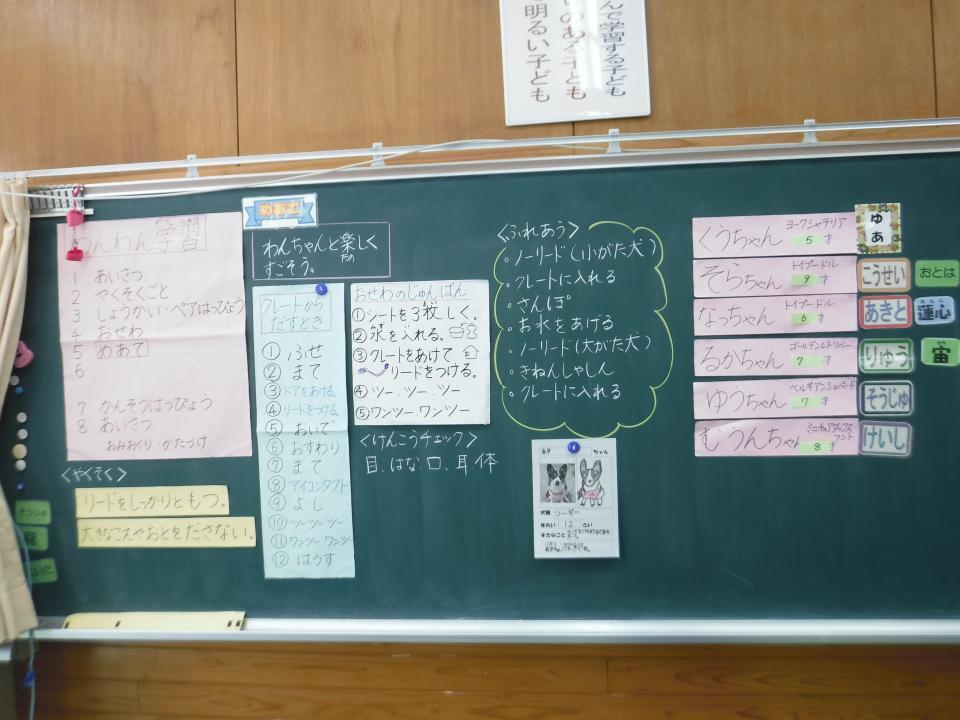 んで学習する子ども
いのある子ども
明るい子ども
わんわん学習
1 あいさつ
2 やくそくごと
3 しょうかい・ペアはっぴょう
4 おせわ
5 めあて
6
7 かんそうはっぴょう
8 あいさつ
おみおくり・かたづけ
<やくそく>
リードをしっかりともつ。
大きなこえやおとをださない。
めあて
わんちゃんと楽しく
すごそう。
たの
クレートから
だすとき
① ふせ
② まて
③ ドアをあける
④ リードをつける
⑤ おいで
⑥ おすわり
⑦ まて
⑧ アイコンタクト
⑨ よし
⑩ ツーツーツー
⑪ ワンツーワンツー
⑫ はうす
おせわのじゅんばん
①シートを3枚しく。
②水を入れる。
③クレートをあけて
リードをつける。
④ツー.ツー.ツー
⑤ワンツー.ワンツー
<けんこうチェック>
目.はな.口.耳.体
<ふれあう>
・ノーリード(小がた犬)
・クレートに入れる
・さんぽ
・お水をあげる
・ノーリード(大がた犬)
・きねんしゃしん
・クレートに入れる
ちゃん
犬種 コーギー
ねれい 12 さい
すきなこと
くうちゃん
ヨークシャテリア
5才
ゆあ
そらちゃん
トイプードル
9才
こうせい
おとは
なっちゃん
トイプードル
6才
あきと
蓮心
るかちゃん
ゴールデンレトリバー
7才
りゅう
宙
ゆうちゃん
ベルギアンシェパード
7才
そうじゅ
むうんちゃん
ミニチュアダックスフント
8才
けいし